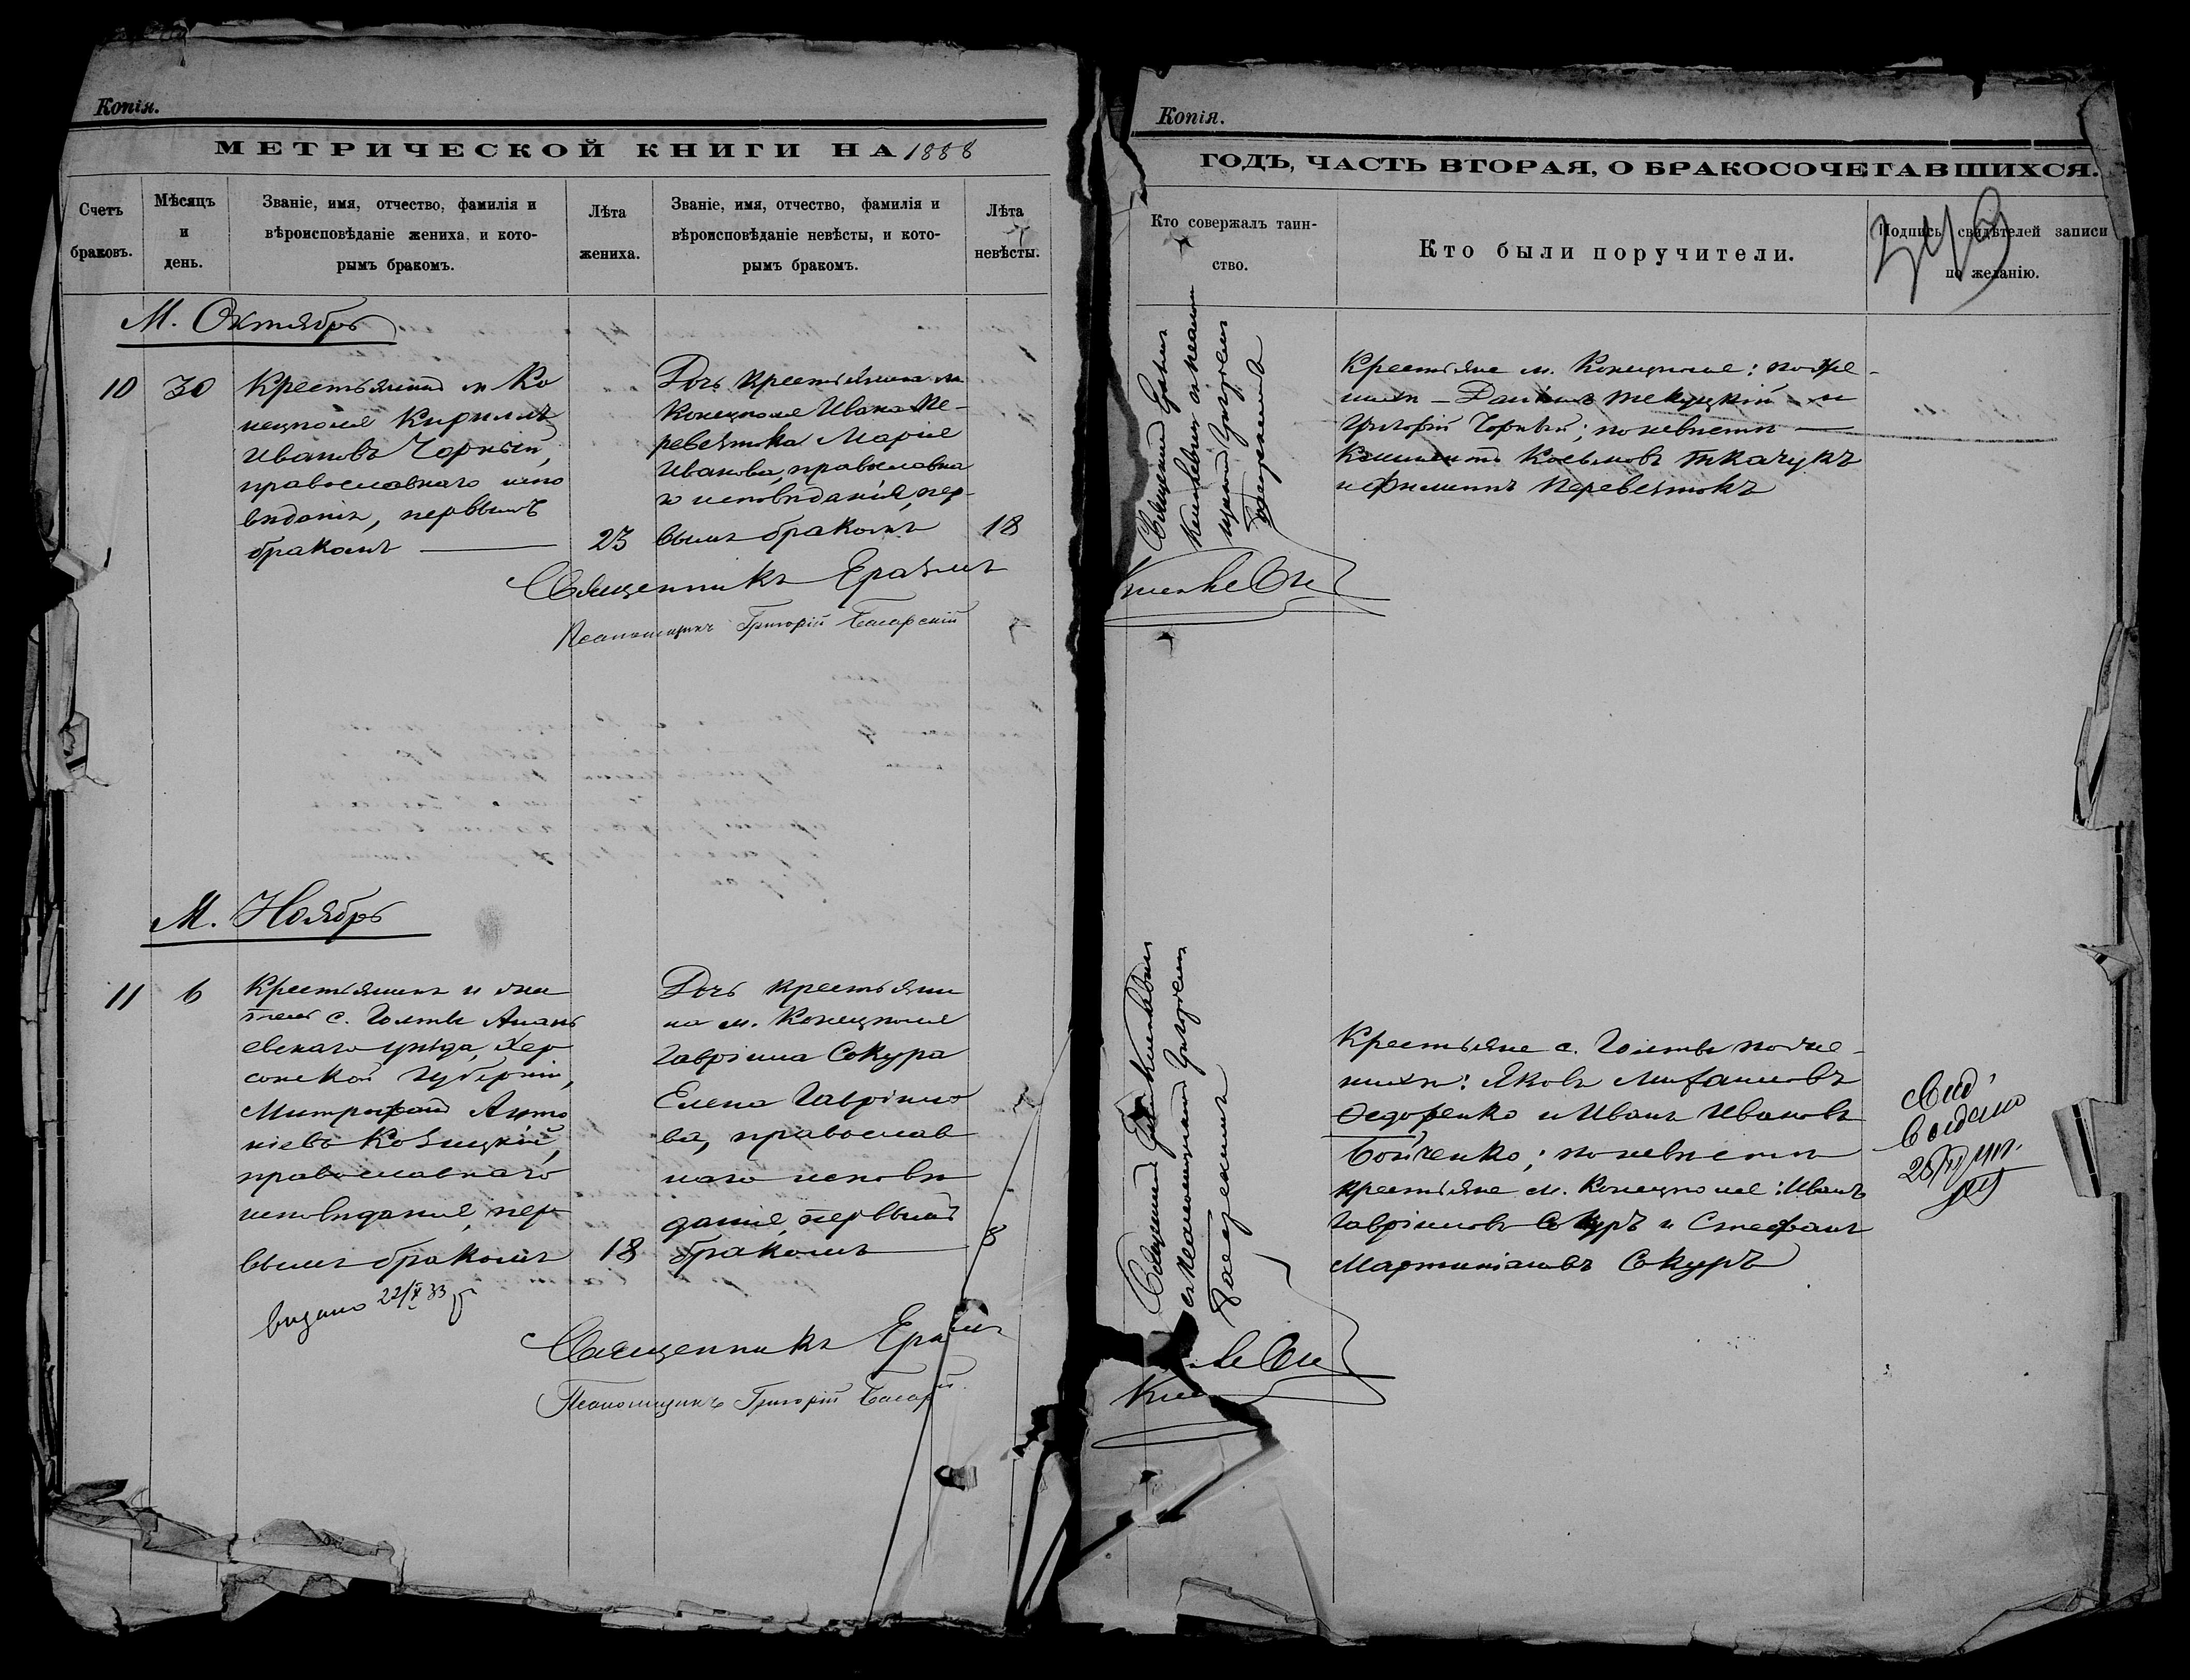 Копія.
МЕТРИЧЕСКОЙ КНИГИ НА 1888
Счетъ браковъ.
Мѣсяцъ и день.
Званіе, имя, отчество, фамилія и
вѣроисповѣданіе жениха, и кото-
рымъ бракомъ.
Лѣта жениха.
Званіе, имя, отчество, фамилія и
вѣроисповѣданіе невѣсты, и кото-
рымъ бракомъ.
Лѣта невѣсты.
М. Октябрь
10
30
Крестьянинъ м Ко
нецполя Кириллъ
Ивановъ Чорный,
православнаго испо
вѣданія, первымъ
бракомъ
23
Дочь крестьянина м
Конецполя Ивана Пе-
ревезтока Марія
Иванова, православна
го исповѣданія, пер-
вымъ бракомъ
18
Священникъ Еразмъ
Псаломщикъ Григорій Базарскій
М. Ноябрь
11
6
Крестьянинъ и жи
тель с. Голты Анань
евскаго уѣзда, Хер
сонской губерніи,
Митрофанъ Анто
ніевъ Козицкій,
православнаго
исповѣданія, пер
вымъ бракомъ
18
Дочь крестьяни
на м. Конецполя
Гавріила Сокура
Елена Гавріило
ва, православ
наго исповѣ
данія, первымъ
бракомъ
8
видано 22/X 33
Священникъ Еразмъ
Псаломщикъ Григорій
Копія.
ГОДЪ, ЧАСТЬ ВТОРАЯ, О БРАКОСОЧЕТАВШИХСЯ.
Кто совержалъ таин-
ство.
Кто были поручители.
Подпись свидѣтелей записи
по желанію.
Священникъ Еразмъ
Крестьяне м. Конецполя: по же-
нихѣ – Даніилъ Текуцкій и
Григорій Чорный; по невѣстѣ —
Климентъ Косьмовъ Ткачукъ
и Филиппъ Перевезтокъ
Священникъ Еразмъ
псаломщикомъ Григоріемъ
Крестьяне с. Голты по же-
нихѣ: Яковъ Михаиловъ
Федоренко и Иванъ Ивановъ
Бойченко; по невѣстѣ
крестьяне м. Конецполя: Иванъ
Гавріиловъ Сокуръ и Стефанъ
Мартиніановъ Сокуръ